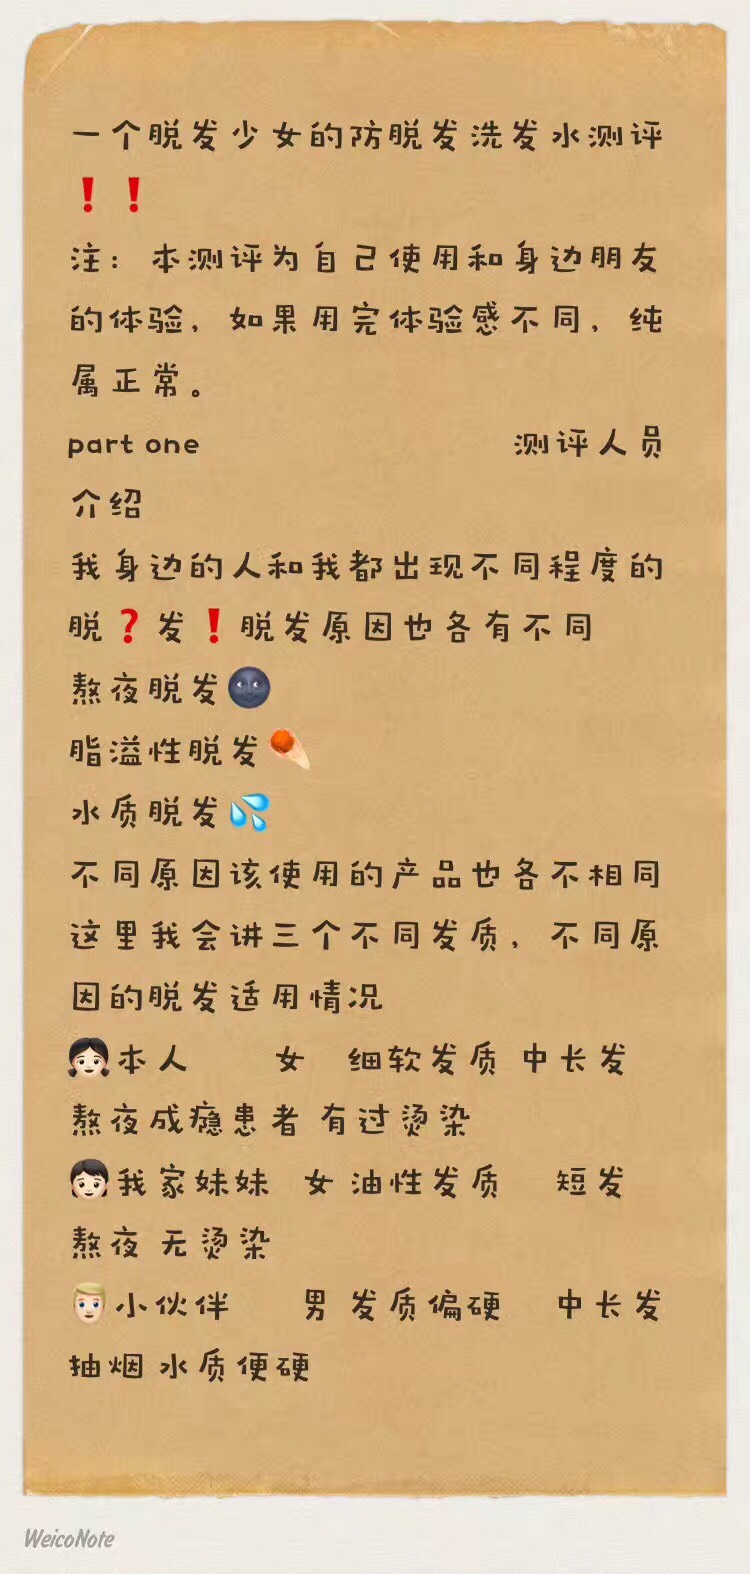 一个脱发少女的防脱发洗发水测评
❗❗
注：本测评为自己使用和身边朋友
的体验，如果用完体验感不同，纯
属正常。
part one 测评人员
介绍
我身边的人和我都出现不同程度的
脱❓发❗脱发原因也各有不同
熬夜脱发🌚
脂溢性脱发☄️
水质脱发💦
不同原因该使用的产品也各不相同
这里我会讲三个不同发质，不同原
因的脱发适用情况
👧🏻本人 女 细软发质 中长发
熬夜成瘾患者 有过烫染
👧🏻我家妹妹 女 油性发质 短发
熬夜 无烫染
👱🏻小伙伴 男 发质偏硬 中长发
抽烟 水质便硬
WeicoNote